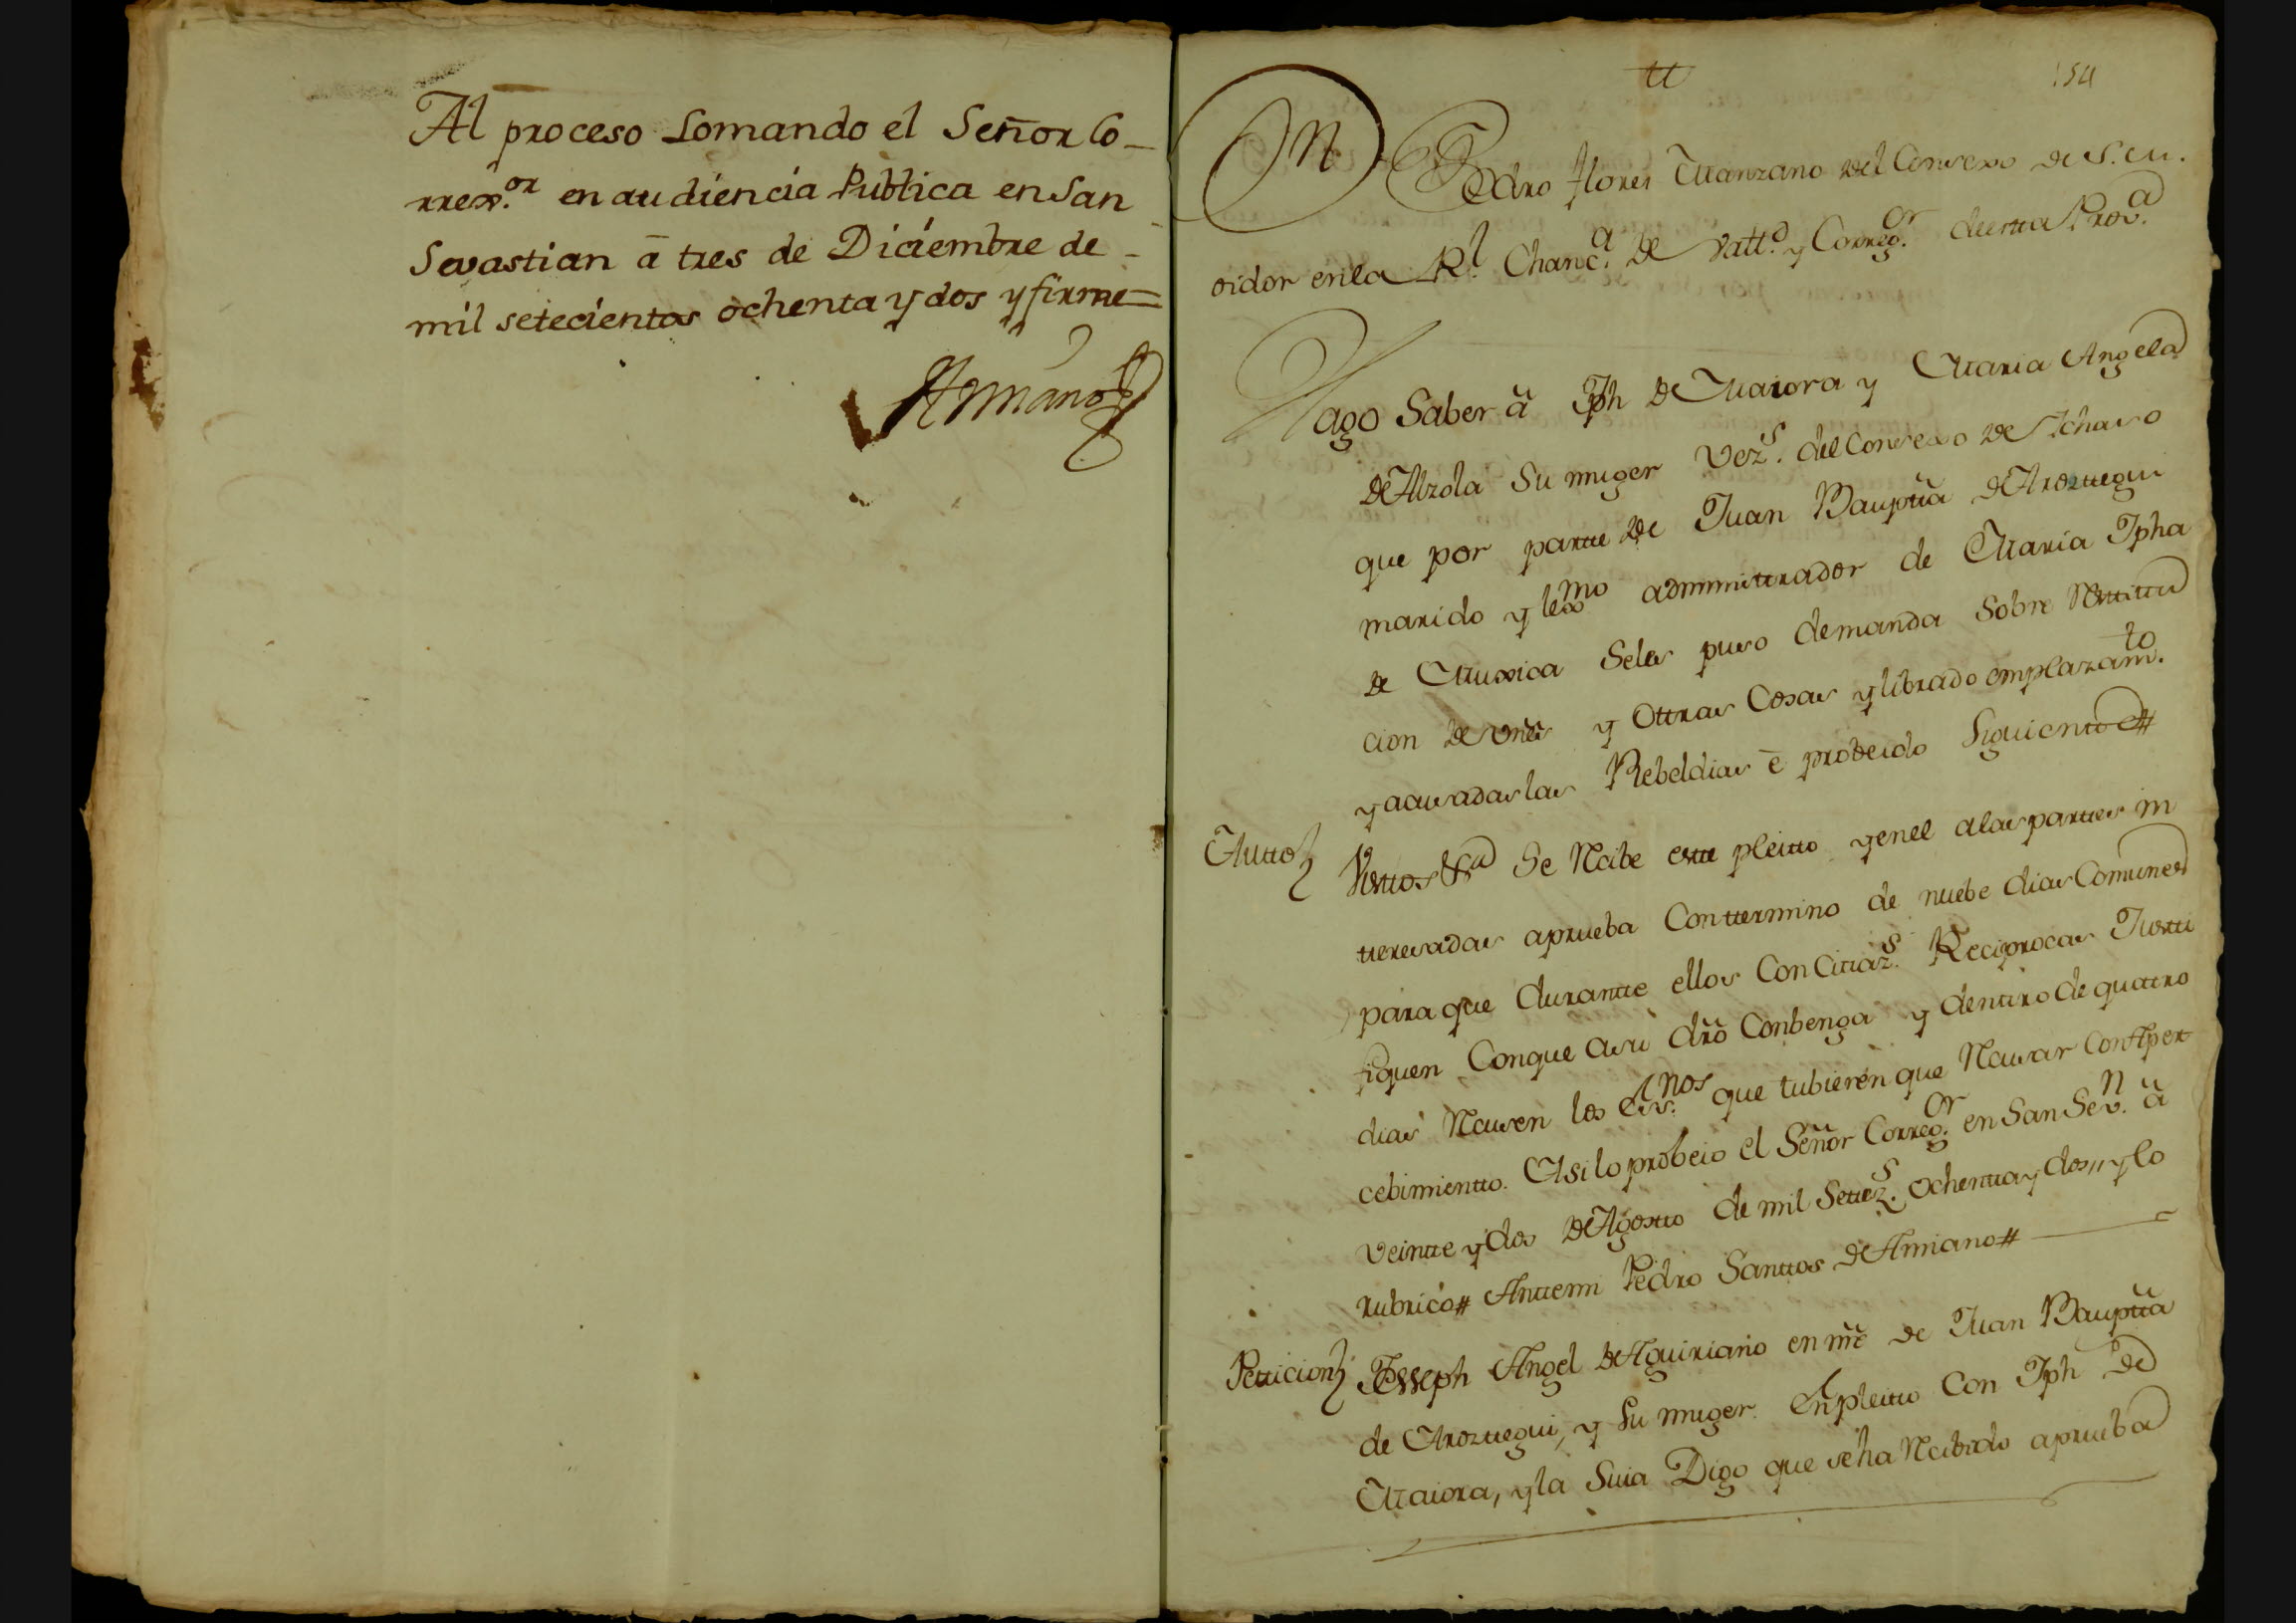 Al proceso Lomando el Señor Co-
rrex.or en audiencia Publica en San
Sevastian a tres de Diciembre de -
mil setecientos ochenta y dos y firme=
Amiano
tt
154
Dn Pedro Flores Manzano del Consexo de S. M.
oidor en la Rl. Chanc.a de Vall.d y Correg.or de esta Prov.a
Hago Saver â Jph de Maiora y Maria Angela
de Alzola Su muger Vez.s del Consexo de Ichaso
que por parte de Juan Bauptta de Aroztegui
marido y lex.mo administrador de Maria Jpha
de Muxica Seles puso demanda Sobre Restitu
cion de vnes y Ottras Cosas y librado emplazam.to
y acusadas las Rebeldias e probeido Siguiente#
Autto
Visttos &a Se Recibe este pleitto y en el a las parttes in
tteresadas aprueba Con ttermino de nuebe dias Comunes
para que durantte ellos Con Citiaz.s Reciprocas Justti
fiquen Conque asu dro Conbenga y dentro de quatro
dias Recusen los Ess.nos que tubieren que Recusar Con Aper
cebimientto. Asi lo probeio el Señor Correg.or en San Seb.n â
veintte y dos de Agostto de mil Settez.s ochentta y dos, y lo
rubricó# Anttemi Pedro Santtos de Amiano#
Petticion
Josseph Angel de Aguiriano en nre de Juan Bauptta
de Aroztegui, y Su muger. En pleitto Con Jph de
Maiora, y la Suia Digo que se ha Recibido aprueba